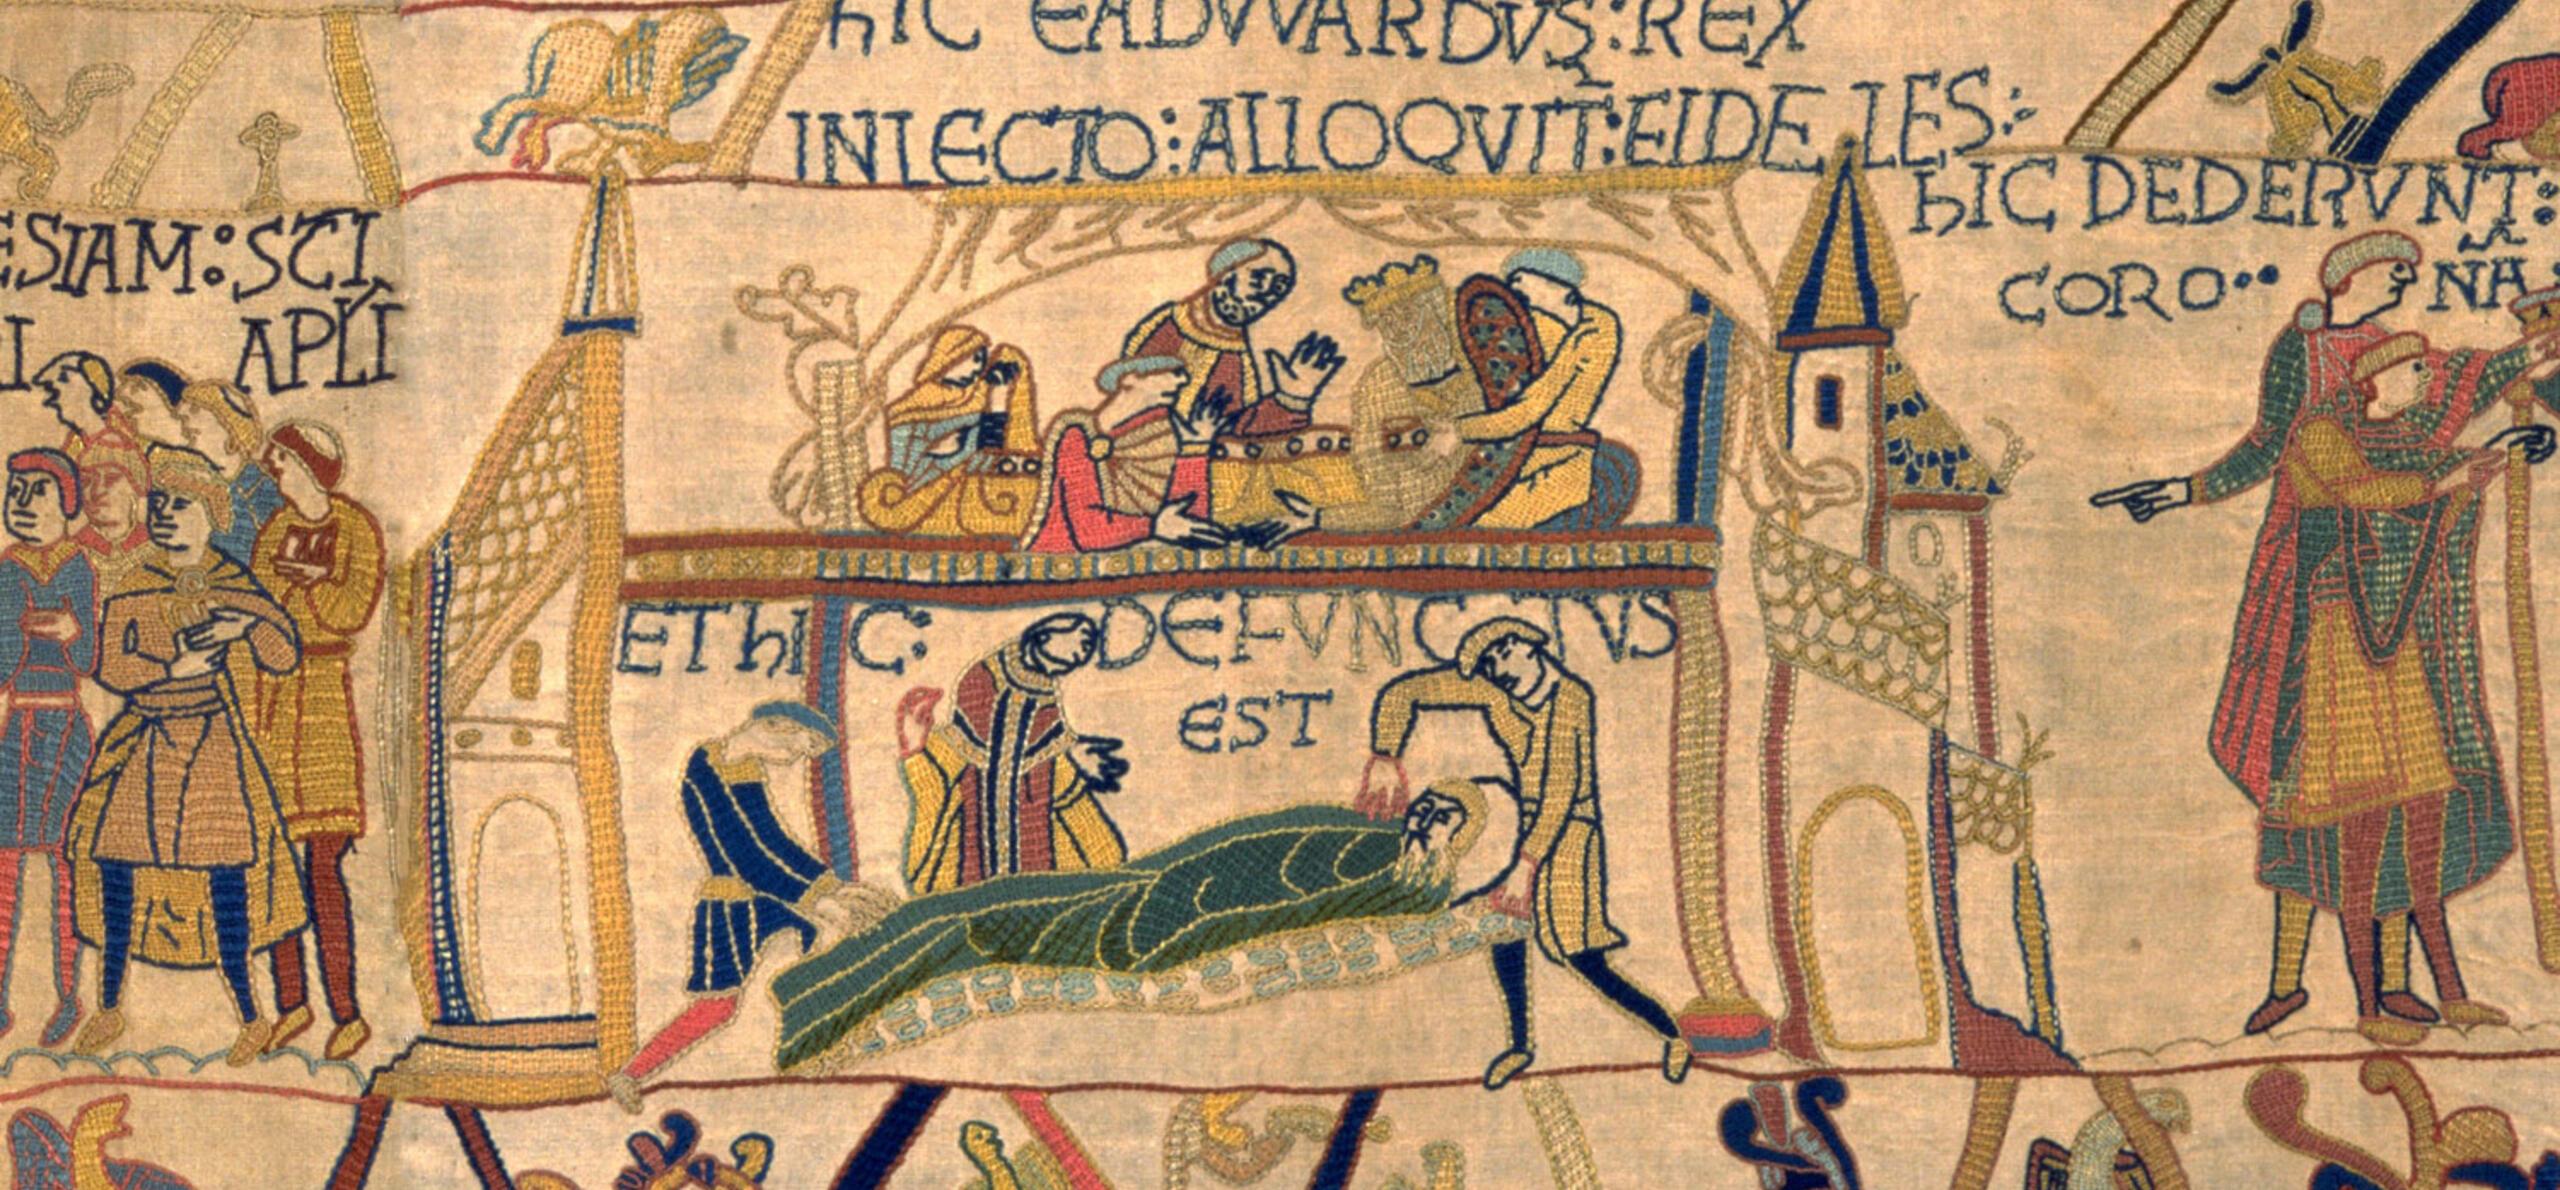 ESIAM:SCI
RI APLI
hIC EADVVARDVS:REX
INLECTO:ALLOQVIT:FIDELES:
EThIC: DEFVNCTVS
EST
hIC DEDERVNT:
CORO NA: